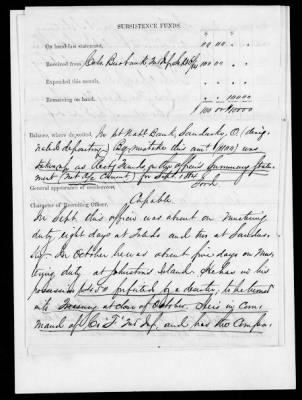 SUBSISTENCE FUNDS.
On hand last statement,
Received from Col. Burbank
Expended this month,
Remaining on hand,
Balance, where deposited, In 1st Natl Bank, Sandusky, O. (desig
nated depository) (By mistake this amt ($100) was
taken up as Bounty Funds on the officer's Summary State
ment for Sept 1864)
General appearance of rendezvous, Good
Character of Recruiting Officer, Capable.
In Sept. this officer was about on mustering
duty eight days at Toledo and ten at Sandus
ky. In October he was about five days on Mus
tering duty at Johnson's Island. He has in his
possession forfeited by a deserter, to be turned
into Treasury at close of October. He is in Com
mand of Co. "F" and has two Compa-